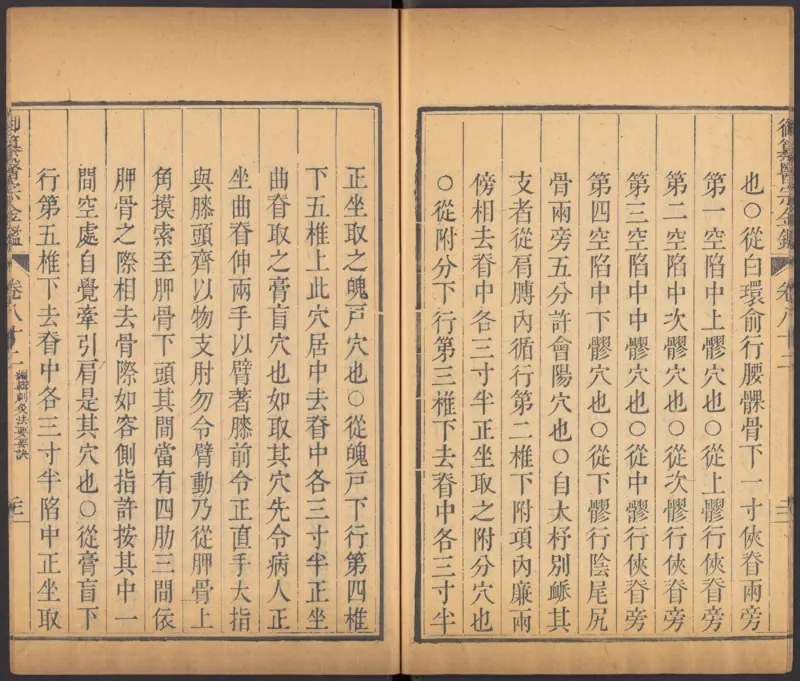 也○從白環俞行腰髁骨下一寸俠脊兩旁
第一空陷中上髎穴也○從上髎行俠脊旁
第二空陷中次髎穴也○從次髎行俠脊旁
第三空陷中中髎穴也○從中髎行俠脊旁
第四空陷中下髎穴也○從下髎行陰尾尻
骨兩旁五分許會陽穴也○自大杼別䘑其
支者從肩髆內循行第二椎下附項內廉兩
傍相去脊中各三寸半正坐取之附分穴也
○從附分下行第三椎下去脊中各三寸半
正坐取之魄戸穴也○從魄戸下行第四椎
下五椎上此穴居中去脊中各三寸半正坐
曲脊取之膏肓穴也如取其穴先令病人正
坐曲脊伸兩手以臂著膝前令正直手大指
與膝頭齊以物支肘勿令臂動乃從胛骨上
角摸索至胛骨下頭其間當有四肋三間依
胛骨之際相去骨際如容側指許按其中一
間空處自覺牽引肩是其穴也○從膏肓下
行第五椎下去脊中各三寸半陷中正坐取
御纂醫宗金鑑 卷八十二 編輯刺灸法要訣